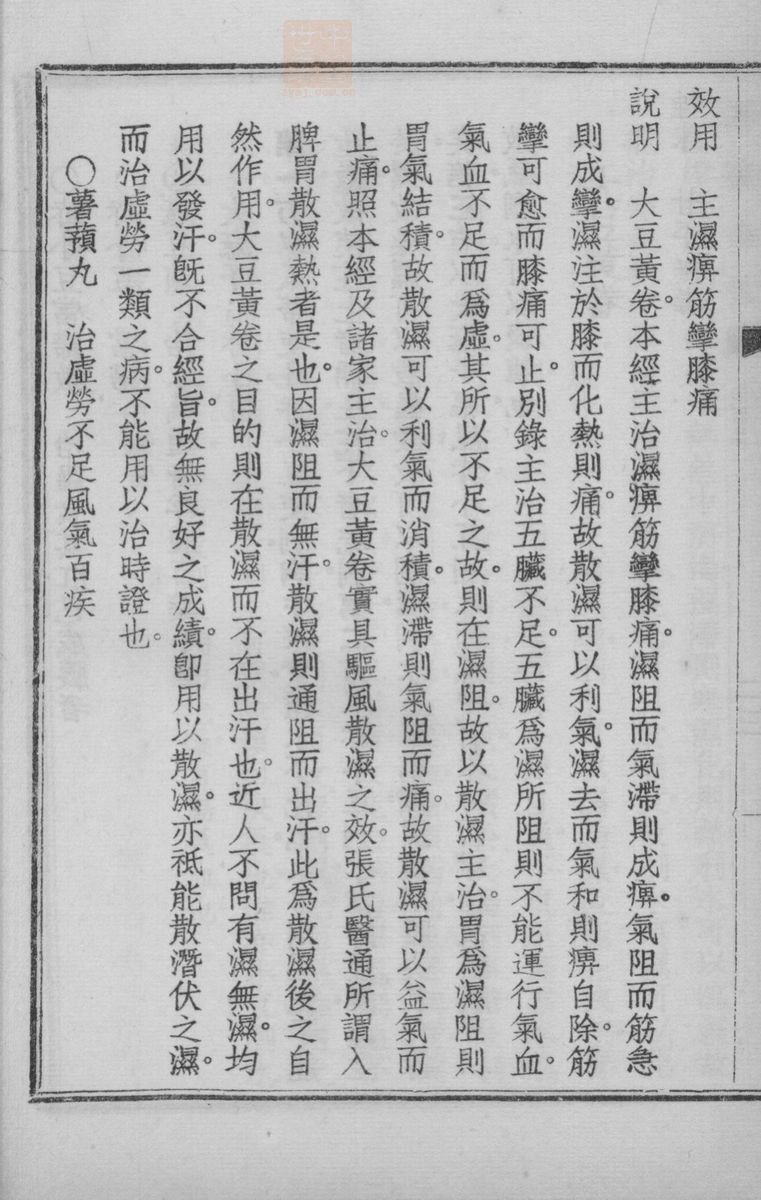 效用　主濕痹筋攣膝痛
說明　大豆黃卷。本經主治濕痹筋攣膝痛。濕阻而氣滯則成痹。氣阻而筋急
則成攣。濕注於膝而化熱則痛。故散濕可以利氣。濕去而氣和則痹自除。筋
攣可愈而膝痛可止。別錄主治五臟不足。五臟爲濕所阻則不能運行氣血。
氣血不足而爲虛。其所以不足之故。則在濕阻。故以散濕主治。胃爲濕阻則
胃氣結積。故散濕可以利氣而消積。濕滯則氣阻而痛。故散濕可以益氣而
止痛。照本經及諸家主治。大豆黃卷實具驅風散濕之效。張氏醫通所謂入
脾胃散濕熱者是也。因濕阻而無汗。散濕則通阻而出汗。此爲散濕後之自
然作用。大豆黃卷之目的則在散濕而不在出汗也。近人不問有濕無濕。均
用以發汗。旣不合經旨。故無良好之成績。卽用以散濕。亦祗能散潛伏之濕。
而治虛勞一類之病。不能用以治時證也。
〇薯蕷丸　治虛勞不足風氣百疾